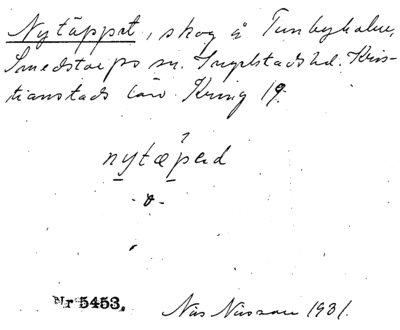 Nytäppet, skog å Tunbyholm,
Smedstorps sn. Ingelstads hd. Kris-
tianstads län. Kring 19.
nytæpəd
Nr 5453.
Nils Nilsson 1931.